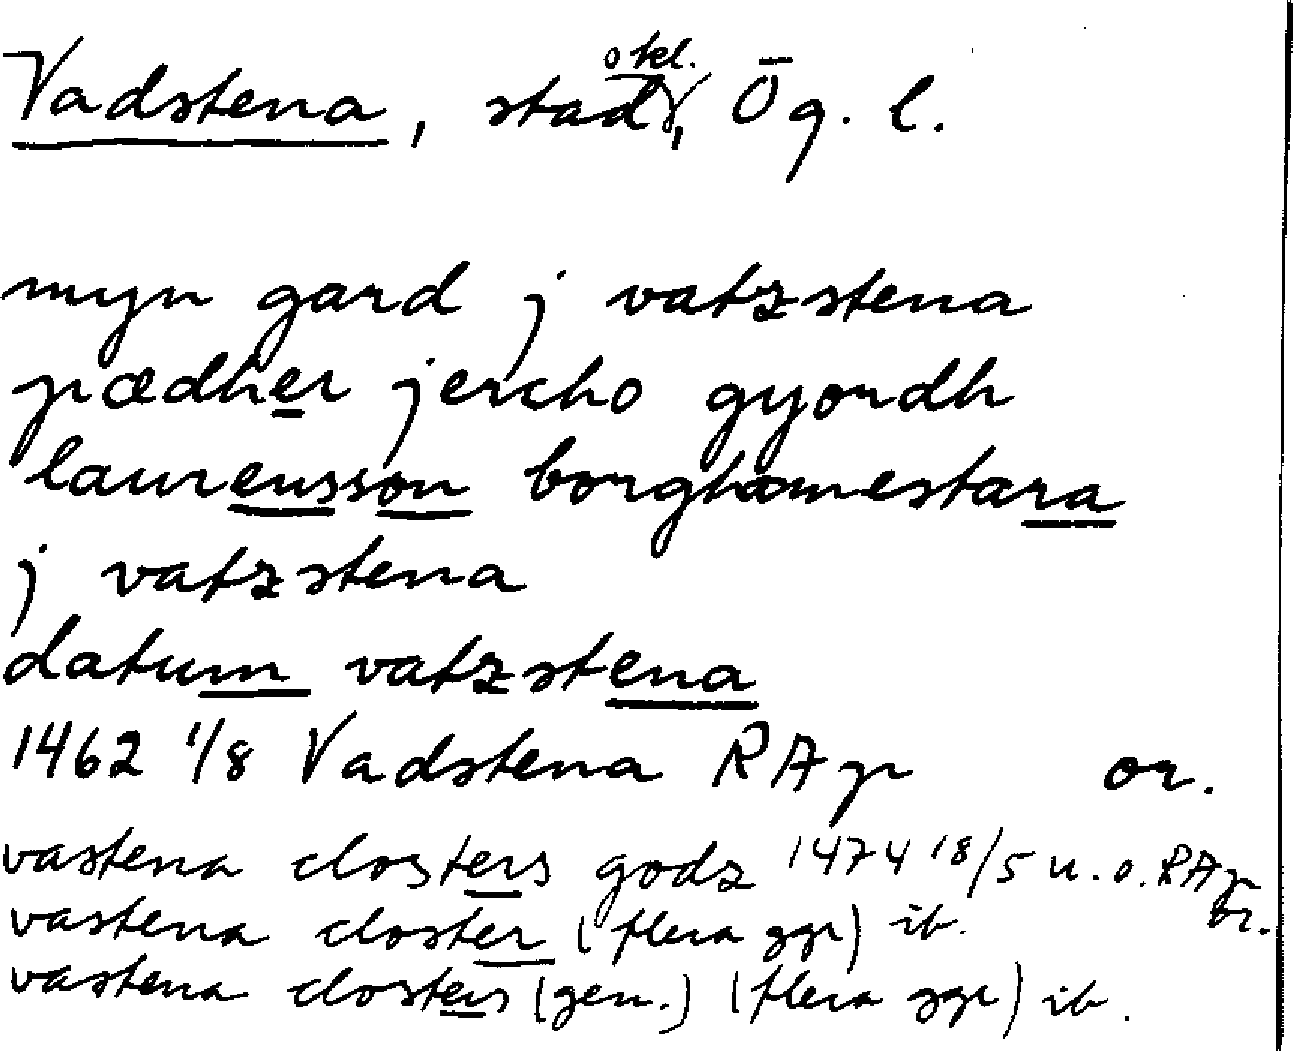 Vadstena, stad o kl., Ög. l.
myn gard j vatzstena
pædher jercho gyordh
laurensson borghamestara
j vatzstena
datum vatzstena
1462 1/8 Vadstena RAp or.
vastena closters godz 1474 18/5 u.o. RAp or.
vastena closter (flera ggr) ib.
vastena closters (gen.) (flera ggr) ib.